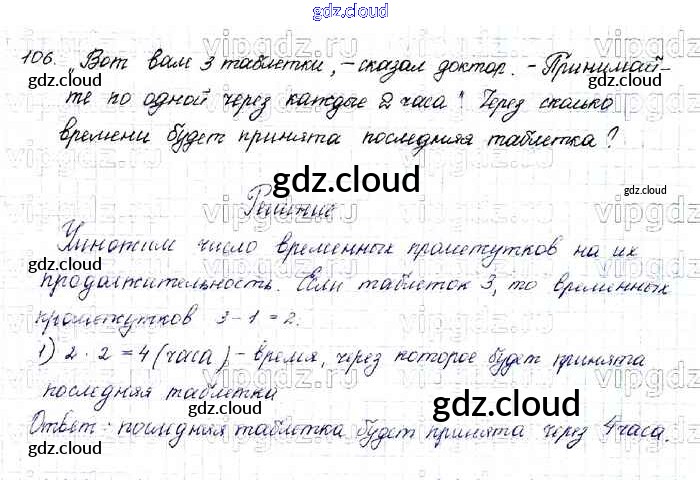 gdz.cloud
106. „Вот вам 3 таблетки, – сказал доктор. – Принимай-
те по одной через каждые 2 часа". Через сколько
времени будет принята последняя таблетка?
Решение
Умножим число временных промежутков на их
продолжительность. Если таблеток 3, то временных
промежутков 3 – 1 = 2.
1) 2 · 2 = 4 (часа) – время, через которое будет принята
последняя таблетка
Ответ: последняя таблетка будет принята через 4 часа.
gdz.cloud
gdz.cloud
gdz.cloud
gdz.cloud
gdz.cloud
gdz.cloud
gdz.cloud
gdz.cloud
gdz.cloud
gdz.cloud